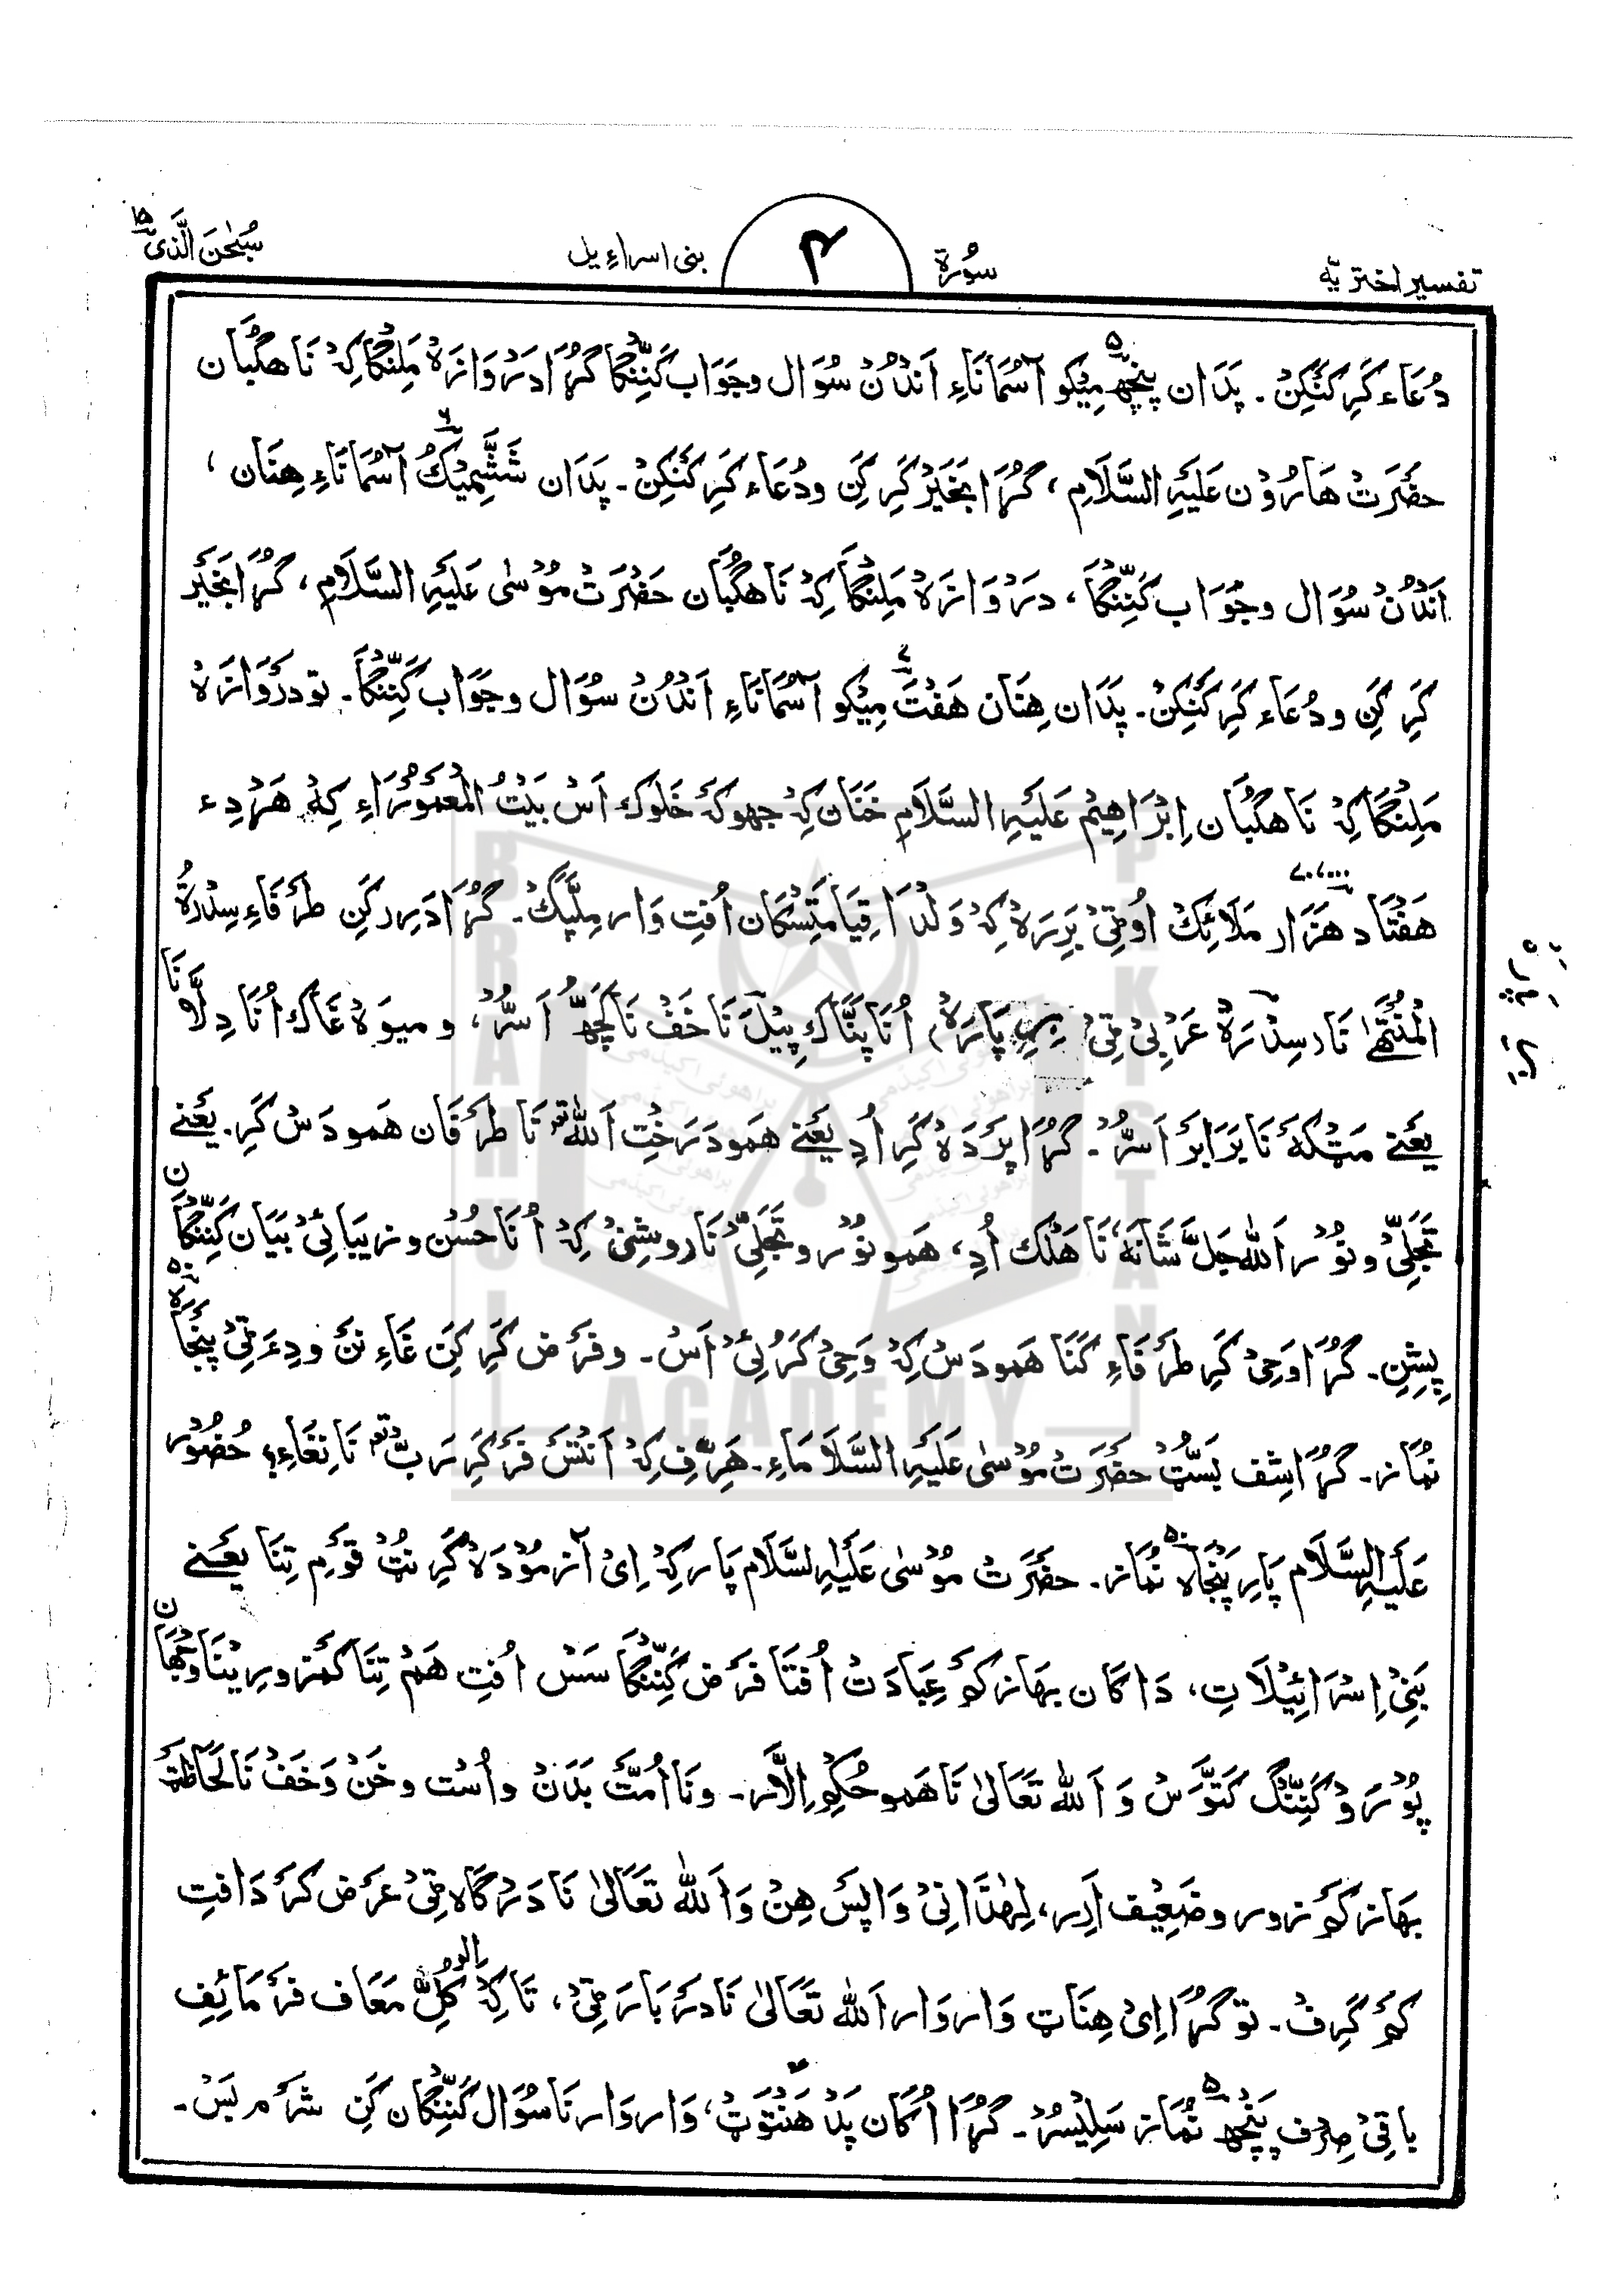 تفسیر اختریّه
سُوْرَة
۴
بنی اسراءیل
سُبْحٰنَ الَّذِی ۱۵
دُعَاء کَرِ کَنْکِنْ۔ پَدَان پنچھ مِیْکو آسْمَانَاءِ اَنْدُنْ سُوَال وجَوَاب کَنِنْگَا گُرَا دَرْوَازَهْ مَلِنْگَا کِهْ نَاهگَپان
حضْرَتْ هَارُوْن عَلَیْهِ السَّلَام، گُرَا بخَیْر کَرِ کَنِ ودُعَاء کَرِ کَنْکِنْ۔ پَدَان شَشْمِیْکُ آسُمَانَاءِ هِنَان،
اَنْدُنْ سُوَال وجَوَاب کَنِنْگَا، دَرْوَازَهْ مَلِنْگَا کِهْ نَاهگَپان حَضْرَتْ مُوْسٰی عَلَیْهِ السَّلَام، گُرَا بَخَیْر
کَرِ کَنِ ودُعَاء کَرِ کَنْکِنْ۔ پَدَان هِنَان هَفْتَ مِیْکو آسُمَانَاءِ اَنْدُنْ سُوَال وجَوَاب کَنِنْگَا۔ تو دَرْوَازَهْ
مَلِنْگَا کِهْ نَاهگَپان اِبْرَاهِیْم عَلَیْهِ السَّلَام خَنَان کِهْ جهوکَهْ خَلوک اَسْ بَیْتُ الْمَعْمُوْرَاءِ کِهْ هَرْدِء
هَفْتَاد هَزَار ۷۰،۰۰۰ مَلَائِک اُوقِیْ بَرِرَهْ کِهْ وَلْدَا قِیَامَتِسْکَان اُفْتِ وَار مِلَّپَکْ۔ گُرَا دَرِرکَنِ طَرَفَاءِ سِدْرَةُ
الْمُنْتَهٰی نَا (سِدْرَهْ عَرَبِیْ قِیْ پَارَهْ) اُنَا پَنَّاک پِیْلَ نَا خَفْ نَا کَچھُّ اَسُّرْ، و میوَهْ غَاک اُنَا دِلَّا نَا
یَعْنے مَٹکَهْ نَا بَرَابَر اَسُّرْ۔ گُرَا پَرْدَهْ کَرِ اُدِ یَعْنے هَمو دَرَخْتِ اَللّٰه نَا طَرَفَان هَمو دَسْ کَرِ۔ یَعْنے
تَجَلِّیْ ونُوْر اَللّٰه جَلَّ شَانَهٗ نَا هَلْک اُدِ، هَمو نُوْر وتَجَلِّیْ نَا روشِنِیْ کِهْ اُنَا حُسْن و زِیبَائِیْ بَیَان کَنِنْگَا ن
پِشِن۔ گُرَا وَحِیْ کَرِ طَرَفَاءِ کَنَا هَمو دَسْ کِهْ وَحِیْ کَرُوئِیْ اَسْ۔ وفَرْض کَرِ کَنَ غَاءِ نَنْ ودِءَ قِیْ پَنْجَاهْ ۵۰
نُمَاز۔ گُرَا شِف بَسُّٹ حضْرَتْ مُوْسٰی عَلَیْهِ السَّلَامَاءِ۔ هَرِّف کِهْ اَنْتَسْ فَرْکَرِ رَبّ نَا نِغَاءِ؟ حُضُوْر
عَلَیْهِ السَّلَام پَارِ پَنْجَاہْ ۵۰ نُمَاز۔ حضْرَتْ مُوْسٰی عَلَیْهِ السَّلَام پَار کِهْ اِیْ آزمُوْدَهْ کَرِنُٹ قَوْمِ تِنَا یَعْنے
بَنِیْ اِسْرَائِیْلَاتِ، دَاکَان بھَاز کَم عِبَادَتْ اُفْتَا فَرْض کَنِنْگَا سَسْ اُفْتِ هَمْ تِنَا کَمزورِیْنَا وَجھَا ن
پُوْرَو کَنِنْگ کَتَوَّسْ وَ اَللّٰه تَعَالٰی نَا هَمو حُکْم اِلَّار۔ ونَا اُمَّت بَدَنْ واُسْت وخَنْ وَخَفْ نَا لَحَاظَٹ
بھَاز کَمزور وضَعِیْف اَرِر، لِهٰذَا نِیْ وَاپَسْ هِنْ وَ اَللّٰه تَعَالٰی نَا دَرْگَاہ قِیْ عَرْض کَرْ دَافْتِ
کَم کَرِفْ۔ تو گُرَا اِیْ هِنَاٹ وَار وَار اَللّٰه تَعَالٰی نَا دَرْبَار قِیْ، تَاکِهْ کُلِّ مَعَاف فَرْمَائِفِ
باقِیْ صِرْف پَنْچھ ۵ نُمَاز سَلِیْسُر۔ گُرَا اُکَان پَدْ هَنْتَوَٹ، وَار وَار نَا سُوَال کَنِنْگَان کَنِ شَرْم بَسْ۔